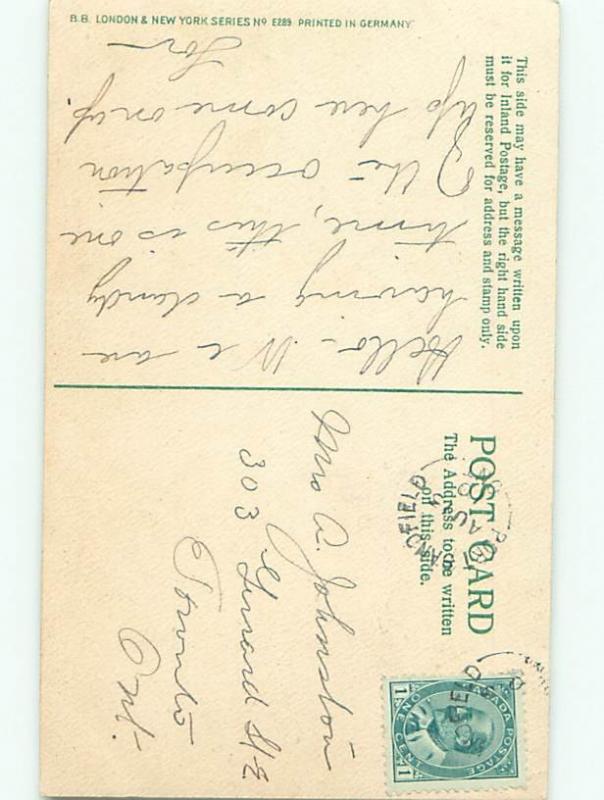 B.B. LONDON & NEW YORK SERIES No E289 PRINTED IN GERMANY
This side may have a message written upon
it for Inland Postage, but the right hand side
must be reserved for address and stamp only.
Hello. We are
having a dandy
time, this is one
the occupation
up here come on up.
POST CARD
The Address to be written
on this side.
Mrs A. Johnston
303 Gerrard St E
Toronto
Ont.
CANADA POSTAGE
ONE CENT
1 1